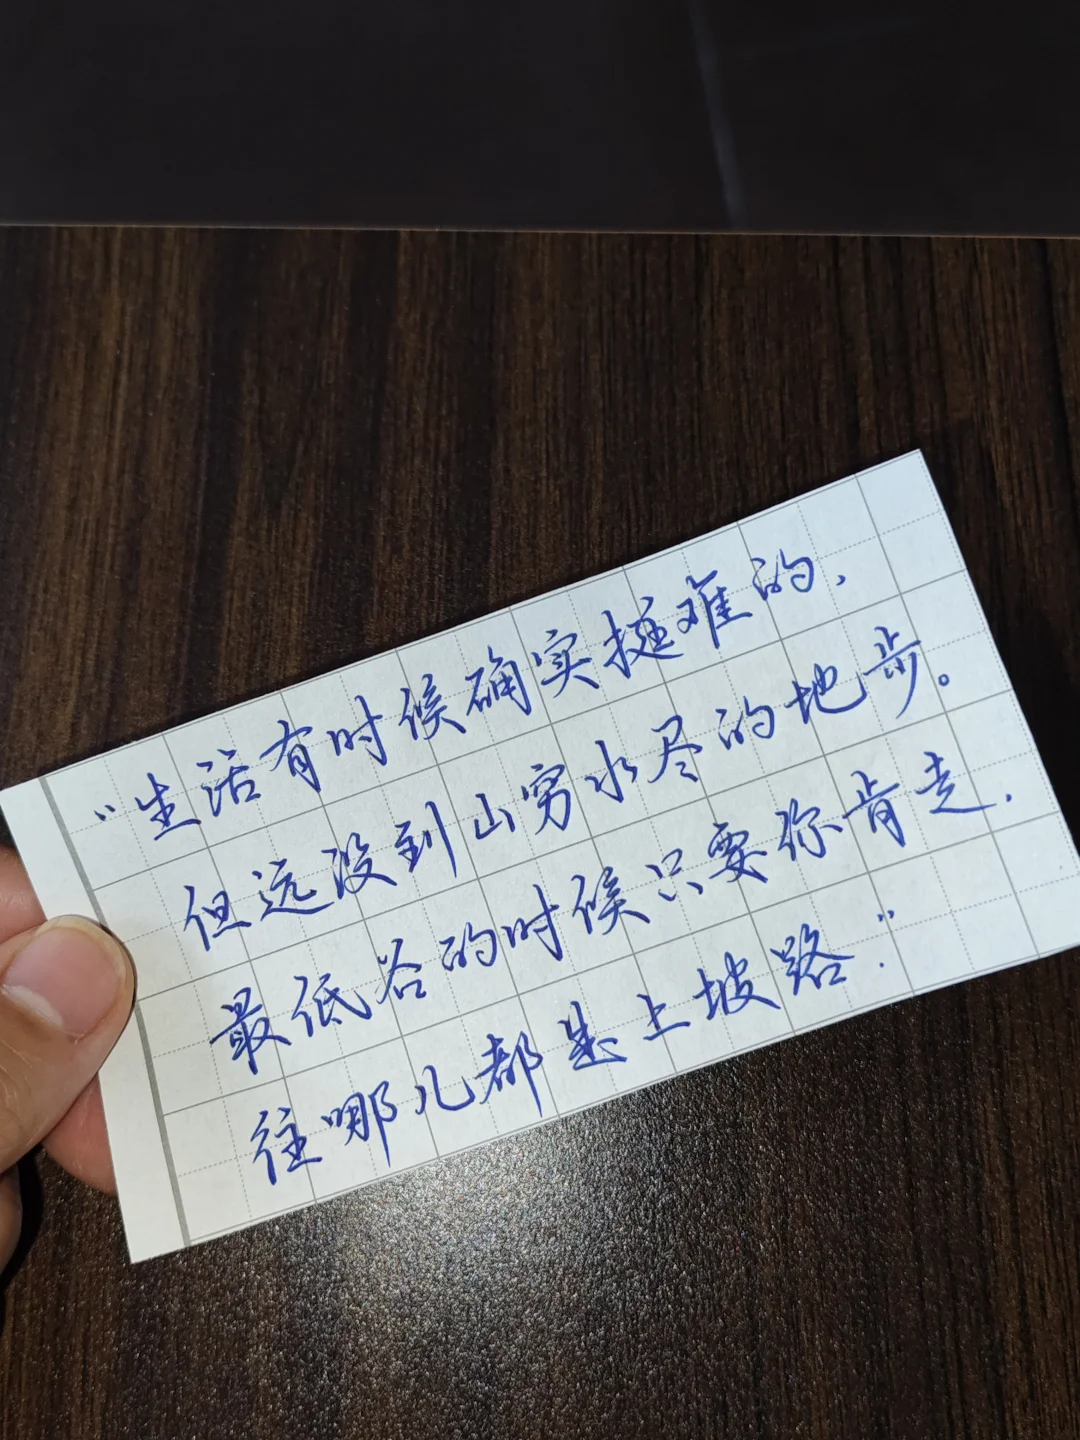 “生活有时候确实挺难的.
但远没到山穷水尽的地步。
最低谷的时候只要你肯走.
往哪儿都是上坡路.”